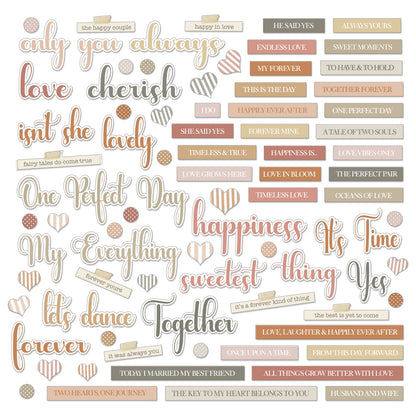 the happy couple
happy in love
only you always
HE SAID YES
ALWAYS YOURS
ENDLESS LOVE
SWEET MOMENTS
love cherish
MY FOREVER
TO HAVE & TO HOLD
THIS IS THE DAY
TOGETHER FOREVER
isn't she lovely
I DO
HAPPILY EVER AFTER
ONE PERFECT DAY
SHE SAID YES
FOREVER MINE
A TALE OF TWO SOULS
fairy tales do come true
TIMELESS & TRUE
HAPPINESS IS..
LOVE VIBES ONLY
LOVE GROWS HERE
LOVE IN BLOOM
THE PERFECT PAIR
One Perfect Day
TIMELESS LOVE
OCEANS OF LOVE
happiness
It's Time
My Everything
sweetest thing
Yes
forever yours
it's a forever kind of thing
let's dance
Together
the best is yet to come
forever
LOVE, LAUGHTER & HAPPILY EVER AFTER
it was always you
ONCE UPON A TIME
FROM THIS DAY FORWARD
TODAY I MARRIED MY BEST FRIEND
ALL THINGS GROW BETTER WITH LOVE
TWO HEARTS, ONE JOURNEY
THE KEY TO MY HEART BELONGS TO YOU
HUSBAND AND WIFE